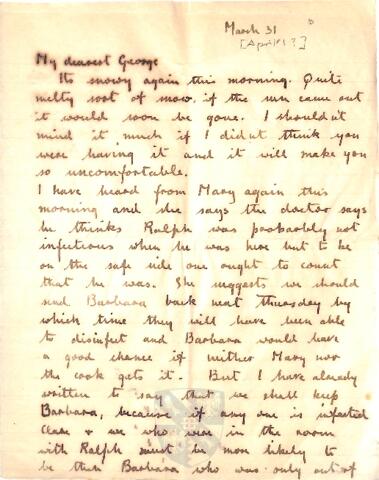 March 31
[April 1?]
My dearest George
Its snowy again this morning. Quite
melty sort of snow, if the sun came out
it would soon be gone. I shouldnt
mind it much if I didnt think you
were having it and it will make you
so uncomfortable.
I have heard from Mary again this
morning and she says the doctor says
he thinks Ralph was probably not
infectious when he was here but to be
on the safe side one ought to count
that he was. She suggests we should
send Barbara back next Thursday by
which time they will have been able
to disinfect and Barbara would have
a good chance if neither Mary nor
the cook gets it. But I have already
written to say that we shall keep
Barbara, because if any one is infected
Clare & we who were in the room
with Ralph must be more likely to
be than Barbara who was only out of